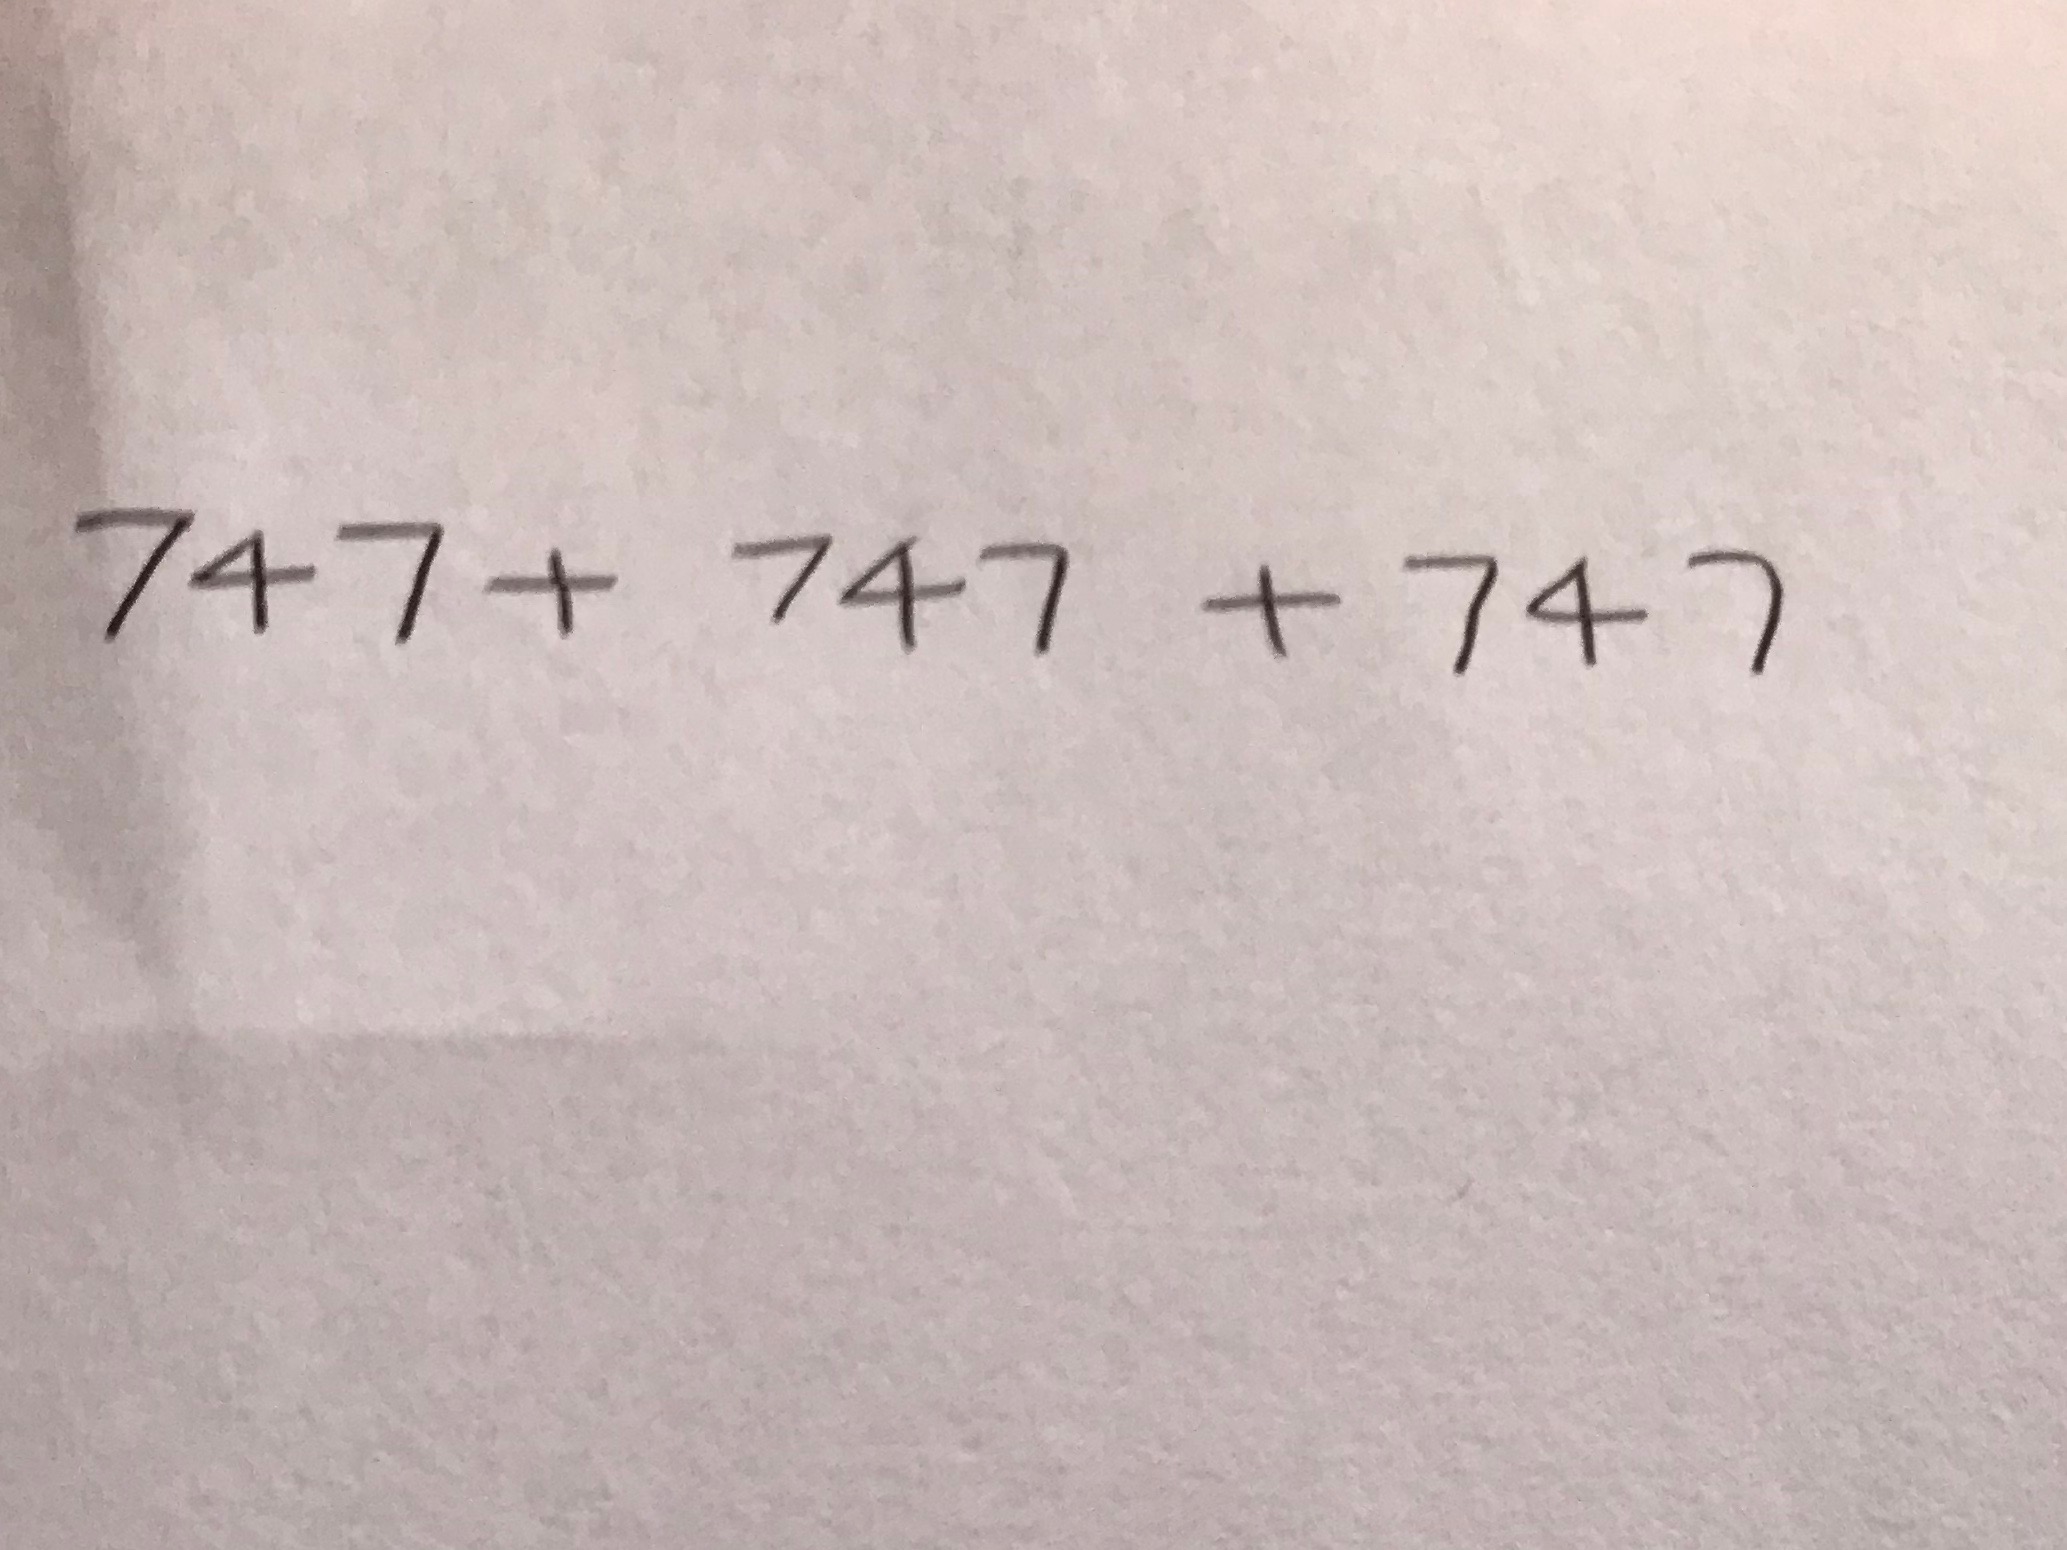 747 + 747 + 747